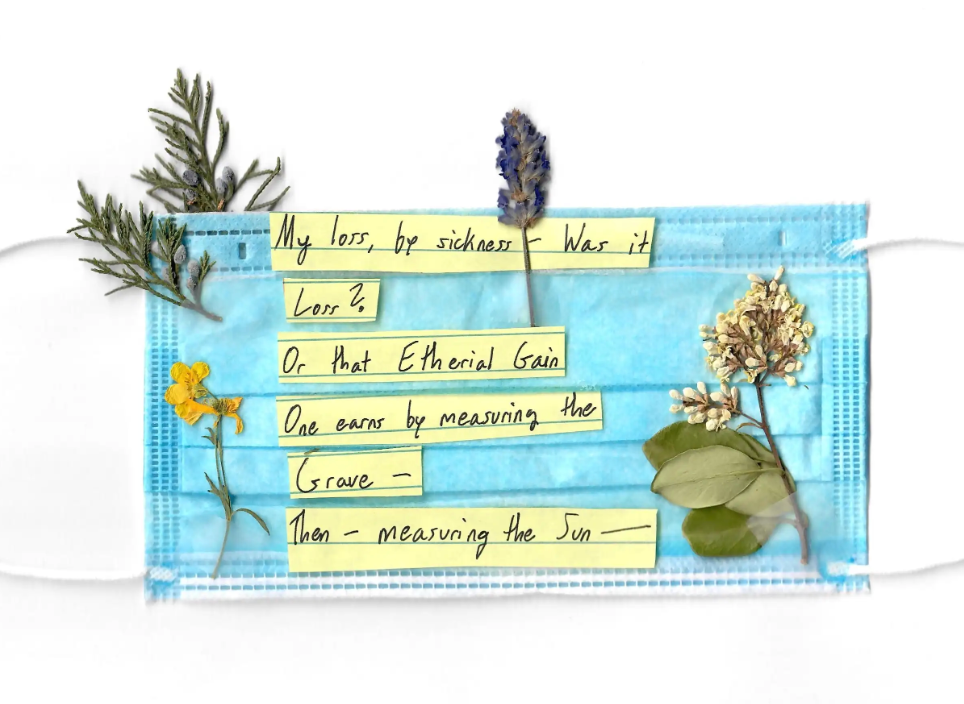 My loss, by sickness – Was it
Loss?
Or that Etherial Gain
One earns by measuring the
Grave –
Then – measuring the Sun —